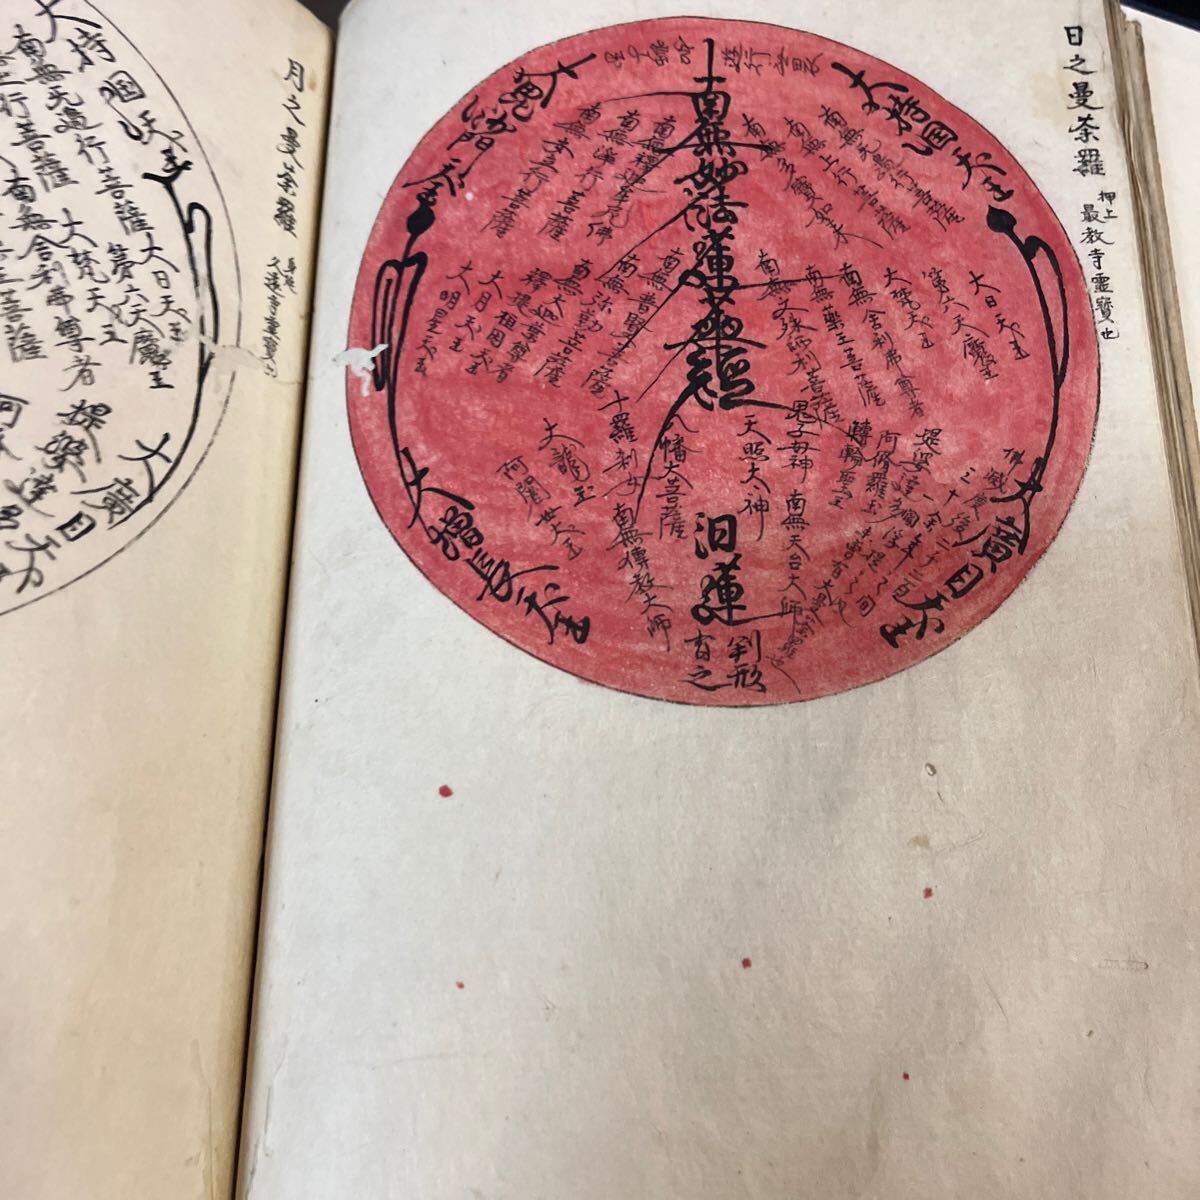 日之曼荼羅
押上
最教寺霊寶也
大持国天王
南無無邊行菩薩
南無上行菩薩
南無多寶如来
南無妙法蓮華経
南無釋迦牟尼佛
南無浄行菩薩
南無安立行菩薩
大毘沙門天王
大日天王
第六天魔王
大梵天王
南無舎利弗尊者
南無薬王菩薩
南無文殊師利菩薩
南無普賢菩薩
南無弥勒菩薩
南無大迦葉尊者
釋提桓因天王
大月天王
大明星天王
提婆達多
阿脩羅王
轉輪聖王
鬼子母神
天照大神
八幡大菩薩
十羅刹女
大龍王
阿闍世大王
南無天台大師
南無傳教大師
大廣目天王
大増長天王
佛滅度後
日蓮
判形
有之
月之曼荼羅
大持国天王
南無無邊行菩薩
上行菩薩
大日天王
第六天魔王
大梵天王
南無舎利弗尊者
王菩薩
提婆達
大廣目天王